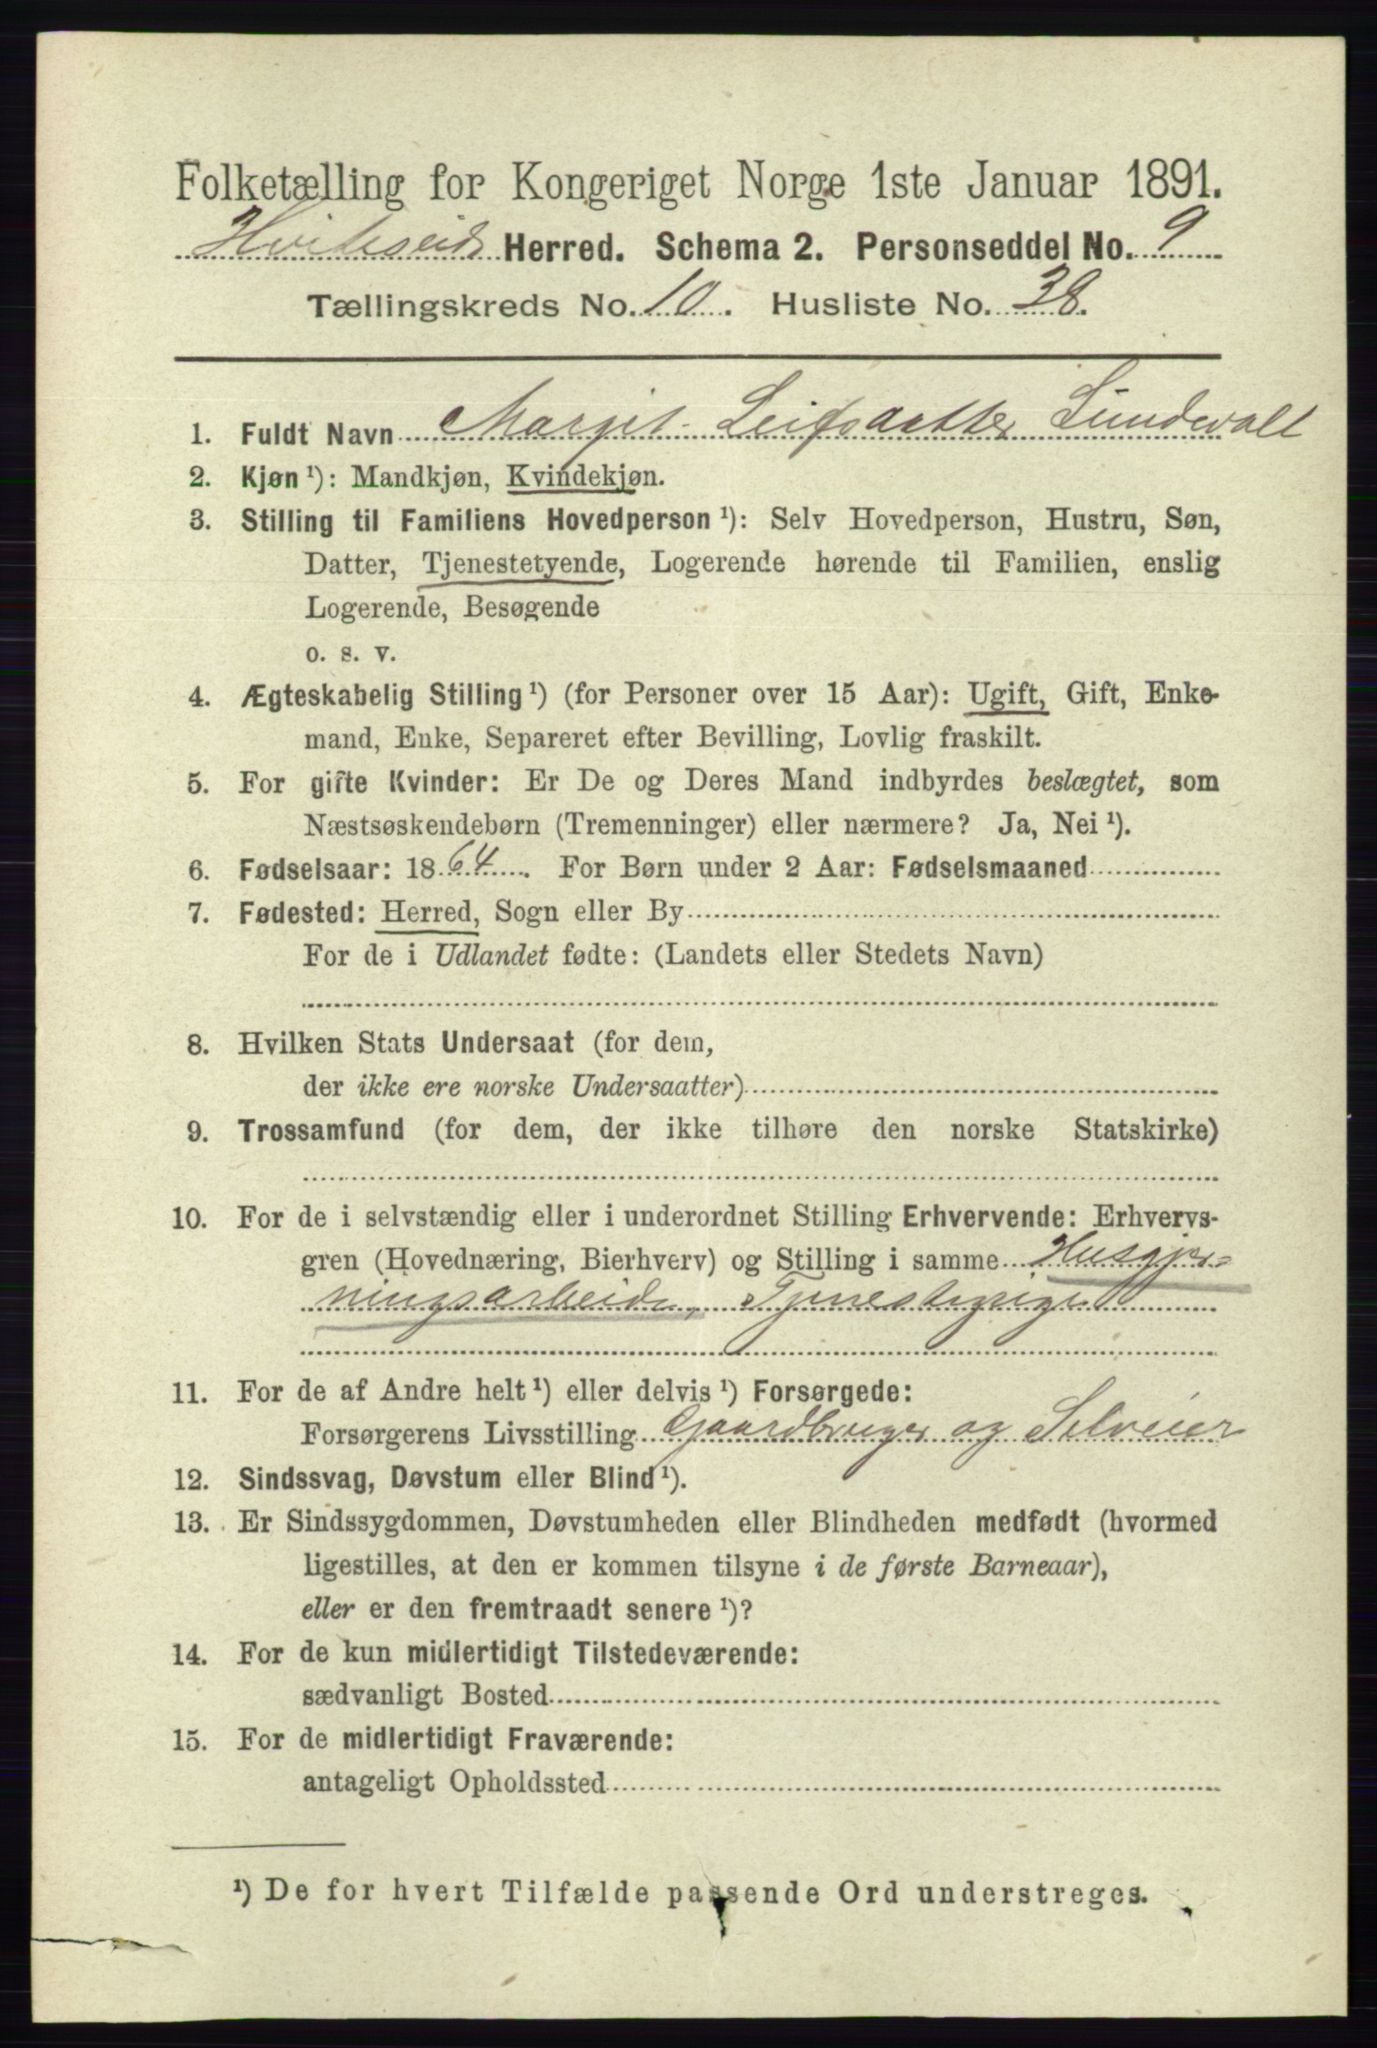 Folketælling for Kongeriget Norge 1ste Januar 1891.
Hviteseid Herred. Schema 2. Personseddel No. 9
Tællingskreds No. 10. Husliste No. 38.
1. Fuldt Navn Margit Leifsdatter Sundvall
2. Kjøn ¹): Mandkjøn, Kvindekjøn.
3. Stilling til Familiens Hovedperson ¹): Selv Hovedperson, Hustru, Søn,
Datter, Tjenestetyende, Logerende hørende til Familien, enslig
Logerende, Besøgende
o. s. v.
4. Ægteskabelig Stilling ¹) (for Personer over 15 Aar): Ugift, Gift, Enke-
mand, Enke, Separeret efter Bevilling, Lovlig fraskilt.
5. For gifte Kvinder: Er De og Deres Mand indbyrdes beslægtet, som
Næstsøskendebørn (Tremenninger) eller nærmere? Ja, Nei ¹).
6. Fødselsaar: 1864. For Børn under 2 Aar: Fødselsmaaned
7. Fødested: Herred, Sogn eller By
For de i Udlandet fødte: (Landets eller Stedets Navn)
8. Hvilken Stats Undersaat (for dem,
der ikke ere norske Undersaatter)
9. Trossamfund (for dem, der ikke tilhøre den norske Statskirke)
10. For de i selvstændig eller i underordnet Stilling Erhvervende: Erhvervs-
gren (Hovednæring, Bierhverv) og Stilling i samme Husgjer-
ningsarbeide, Tjenestepige
11. For de af Andre helt ¹) eller delvis ¹) Forsørgede:
Forsørgerens Livsstilling Gaardbruger og Selveier
12. Sindssvag, Døvstum eller Blind ¹).
13. Er Sindssygdommen, Døvstumheden eller Blindheden medfødt (hvormed
ligestilles, at den er kommen tilsyne i de første Barneaar),
eller er den fremtraadt senere ¹)?
14. For de kun midlertidigt Tilstedeværende:
sædvanligt Bosted
15. For de midlertidigt Fraværende:
antageligt Opholdssted
¹) De for hvert Tilfælde passende Ord understreges.